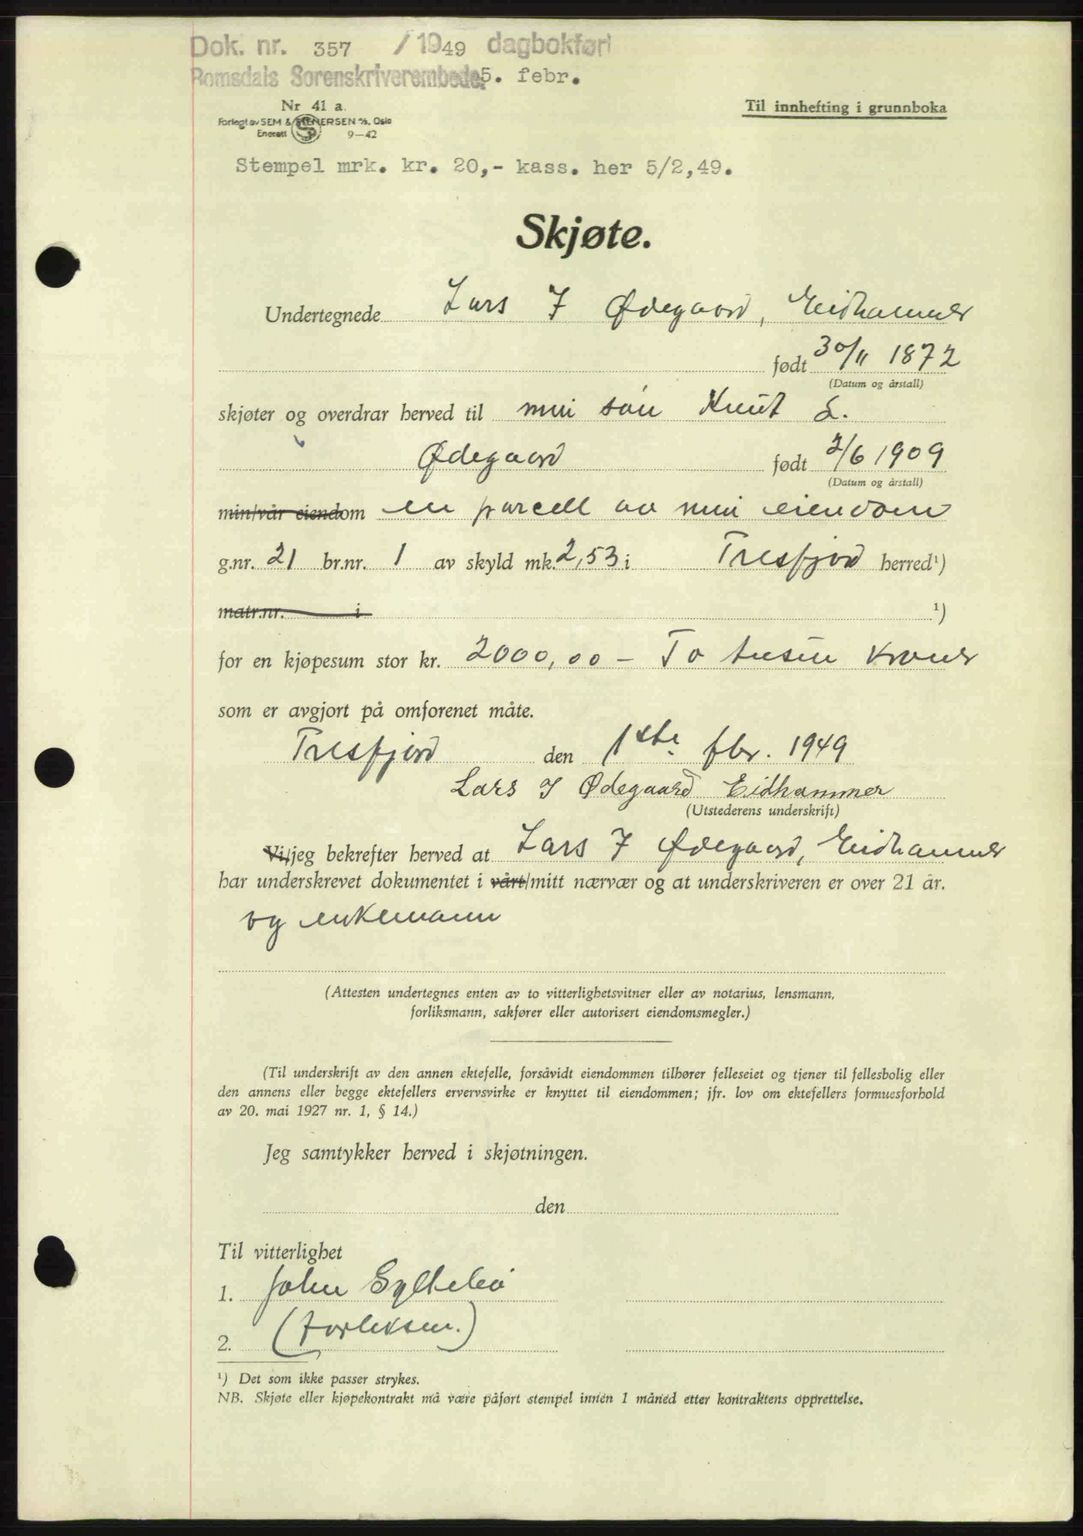 Dok. nr. 357 / 1949 dagbokført
Romsdals Sorenskriverembede 5. febr.
Nr 41 a.
Forlegt av SEM & STENERSEN A/S, Oslo
Enerett 9-42
Til innhefting i grunnboka
Stempel mrk. kr. 20,- kass. her 5/2,49.
Skjøte.
Undertegnede Lars J Ødegaard, Eidhammer
født 30/11 1872
(Datum og årstall)
skjøter og overdrar herved til min sön Knut L.
Ødegaard født 2/6 1909
(Datum og årstall)
min/vår eiendom en parcell av min eiendom
g.nr. 21 br.nr. 1 av skyld mk. 2,53 i Tresfjord herred ¹)
matr.nr. i ¹)
for en kjøpesum stor kr. 2000,00 - To tusen kroner
som er avgjort på omforenet måte.
Tresfjord den 1ste fbr. 1949
Lars J Ødegaard Eidhammer
(Utstederens underskrift)
Vi/jeg bekrefter herved at Lars J Ødegaard, Eidhammer
har underskrevet dokumentet i vårt/mitt nærvær og at underskriveren er over 21 år.
og enkemann
(Attesten undertegnes enten av to vitterlighetsvitner eller av notarius, lensmann,
forliksmann, sakfører eller autorisert eiendomsmegler.)
(Til underskrift av den annen ektefelle, forsåvidt eiendommen tilhører felleseiet og tjener til fellesbolig eller
den annens eller begge ektefellers ervervsvirke er knyttet til eiendommen; jfr. lov om ektefellers formuesforhold
av 20. mai 1927 nr. 1, § 14.)
Jeg samtykker herved i skjøtningen.
den
Til vitterlighet
1. John Gyltebø
2. (forliksm.)
¹) Det som ikke passer strykes.
NB. Skjøte eller kjøpekontrakt må være påført stempel innen 1 måned etter kontraktens opprettelse.